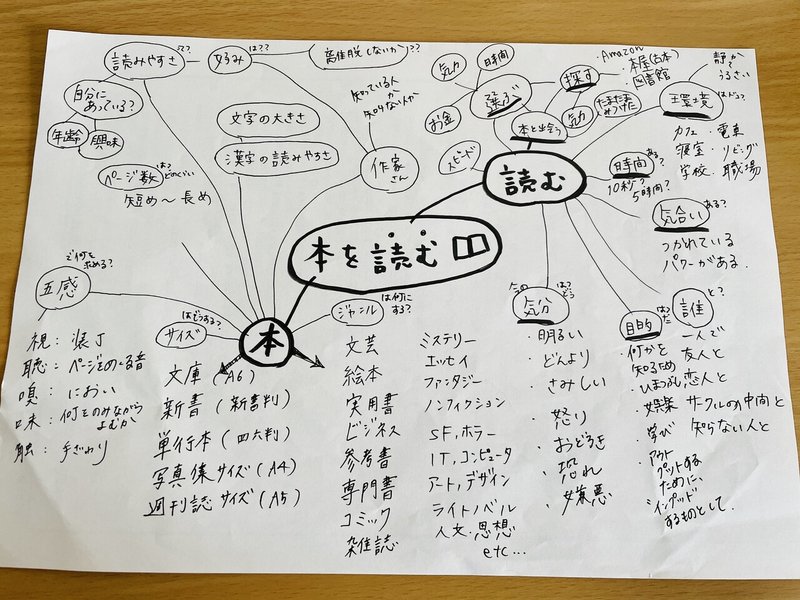 本を読む
本
読みやすさ
は??
好み
は??
離脱しないか??
自分に
あっている?
年齢
興味
文字の大きさ
漢字の読みやすさ
知っている人
か
知らない人か
作家
さん
ページ数
は?
どのくらい
短め〜長め
で何を
求める?
五感
視:装丁
聴:ページをめくる音
嗅:におい
味:何をのみながら
よむか
触:手ざわり
サイズ
はどうする?
文庫(A6)
新書(新書判)
単行本(四六判)
写真集サイズ(A4)
週刊誌サイズ(A5)
ジャンル
は何に
する?
文芸
絵本
実用書
ビジネス
参考書
専門書
コミック
雑誌
ミステリー
エッセイ
ファンタジー
ノンフィクション
SF,ホラー
IT,コンピュータ
アート,デザイン
ライトノベル
人文・思想
etc...
読む
スピード
選ぶ
気力
時間
お金
本と出会う
探す
Amazon
本屋(古本)
図書館
気力
たまたま
みつけた
環境
はどう?
静か?
うるさい
カフェ・電車
寝室・リビング
学校・職場
時間
ある?
10秒?
5時間?
気合い
ある?
つかれている
パワーがある.
気分
はどう
・明るい
・どんより
・さみしい
・怒り
・おどろき
・恐れ
・嫌悪
目的
は?
・何かを
知るため
・ひまつぶし
・娯楽
・学び
・アウト
プットする
ために,
インプット
するものとして.
誰
と?
一人で
友人と
恋人と
サークルの仲間と
知らない人と